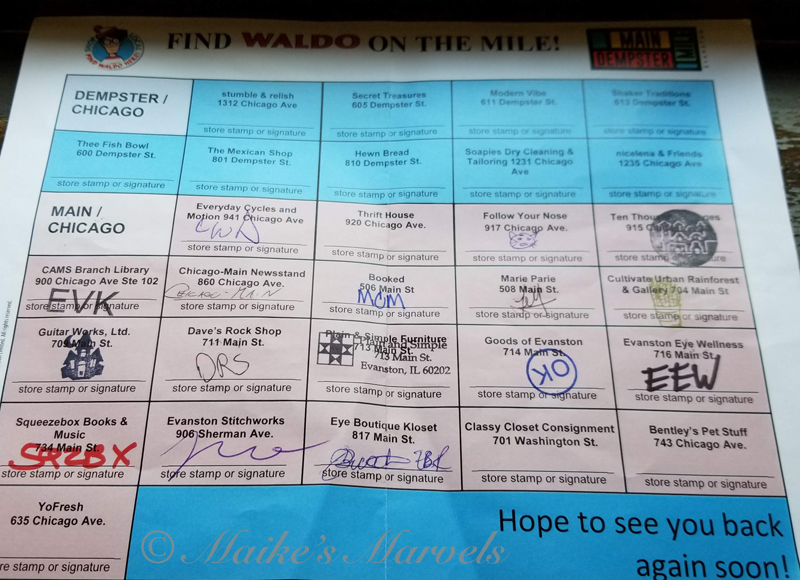 FIND WALDO HERE!
FIND WALDO ON THE MILE!
MAIN
DEMPSTER
MILE
DEMPSTER /
CHICAGO
stumble & relish
1312 Chicago Ave
store stamp or signature
Secret Treasures
605 Dempster St.
store stamp or signature
Modern Vibe
611 Dempster St.
store stamp or signature
Shaker Traditions
613 Dempster St.
store stamp or signature
Thee Fish Bowl
600 Dempster St.
store stamp or signature
The Mexican Shop
801 Dempster St.
store stamp or signature
Hewn Bread
810 Dempster St.
store stamp or signature
Soapies Dry Cleaning &
Tailoring 1231 Chicago
Ave
store stamp or signature
nicelena & Friends
1235 Chicago Ave
store stamp or signature
MAIN /
CHICAGO
Everyday Cycles and
Motion 941 Chicago Ave.
store stamp or signature
Thrift House
920 Chicago Ave.
store stamp or signature
Follow Your Nose
917 Chicago Ave.
store stamp or signature
Ten Thou
915
store stamp or signature
CAMS Branch Library
900 Chicago Ave Ste 102
EVK
store stamp or signature
Chicago-Main Newsstand
860 Chicago Ave.
CHICAGO-MAIN
store stamp or signature
Booked
506 Main St
MOM
store stamp or signature
Marie Parie
508 Main St.
store stamp or signature
Cultivate Urban Rainforest
& Gallery 704 Main St
store stamp or signature
Guitar Works, Ltd.
709 Main St.
store stamp or signature
Dave's Rock Shop
711 Main St.
DRS
store stamp or signature
Plain & Simple Furniture
713 Main St.
Plain and Simple
713 Main St.
Evanston, IL 60202
store stamp or signature
Goods of Evanston
714 Main St.
OK
store stamp or signature
Evanston Eye Wellness
716 Main St.
EEW
store stamp or signature
Squeezebox Books &
Music
734 Main St.
SQZBX
store stamp or signature
Evanston Stitchworks
906 Sherman Ave.
store stamp or signature
Eye Boutique Kloset
817 Main St.
store stamp or signature
Classy Closet Consignment
701 Washington St.
store stamp or signature
Bentley's Pet Stuff
743 Chicago Ave.
store stamp or signature
YoFresh
635 Chicago Ave.
re stamp or signature
Hope to see you back
again soon!
© Maike's Marvels